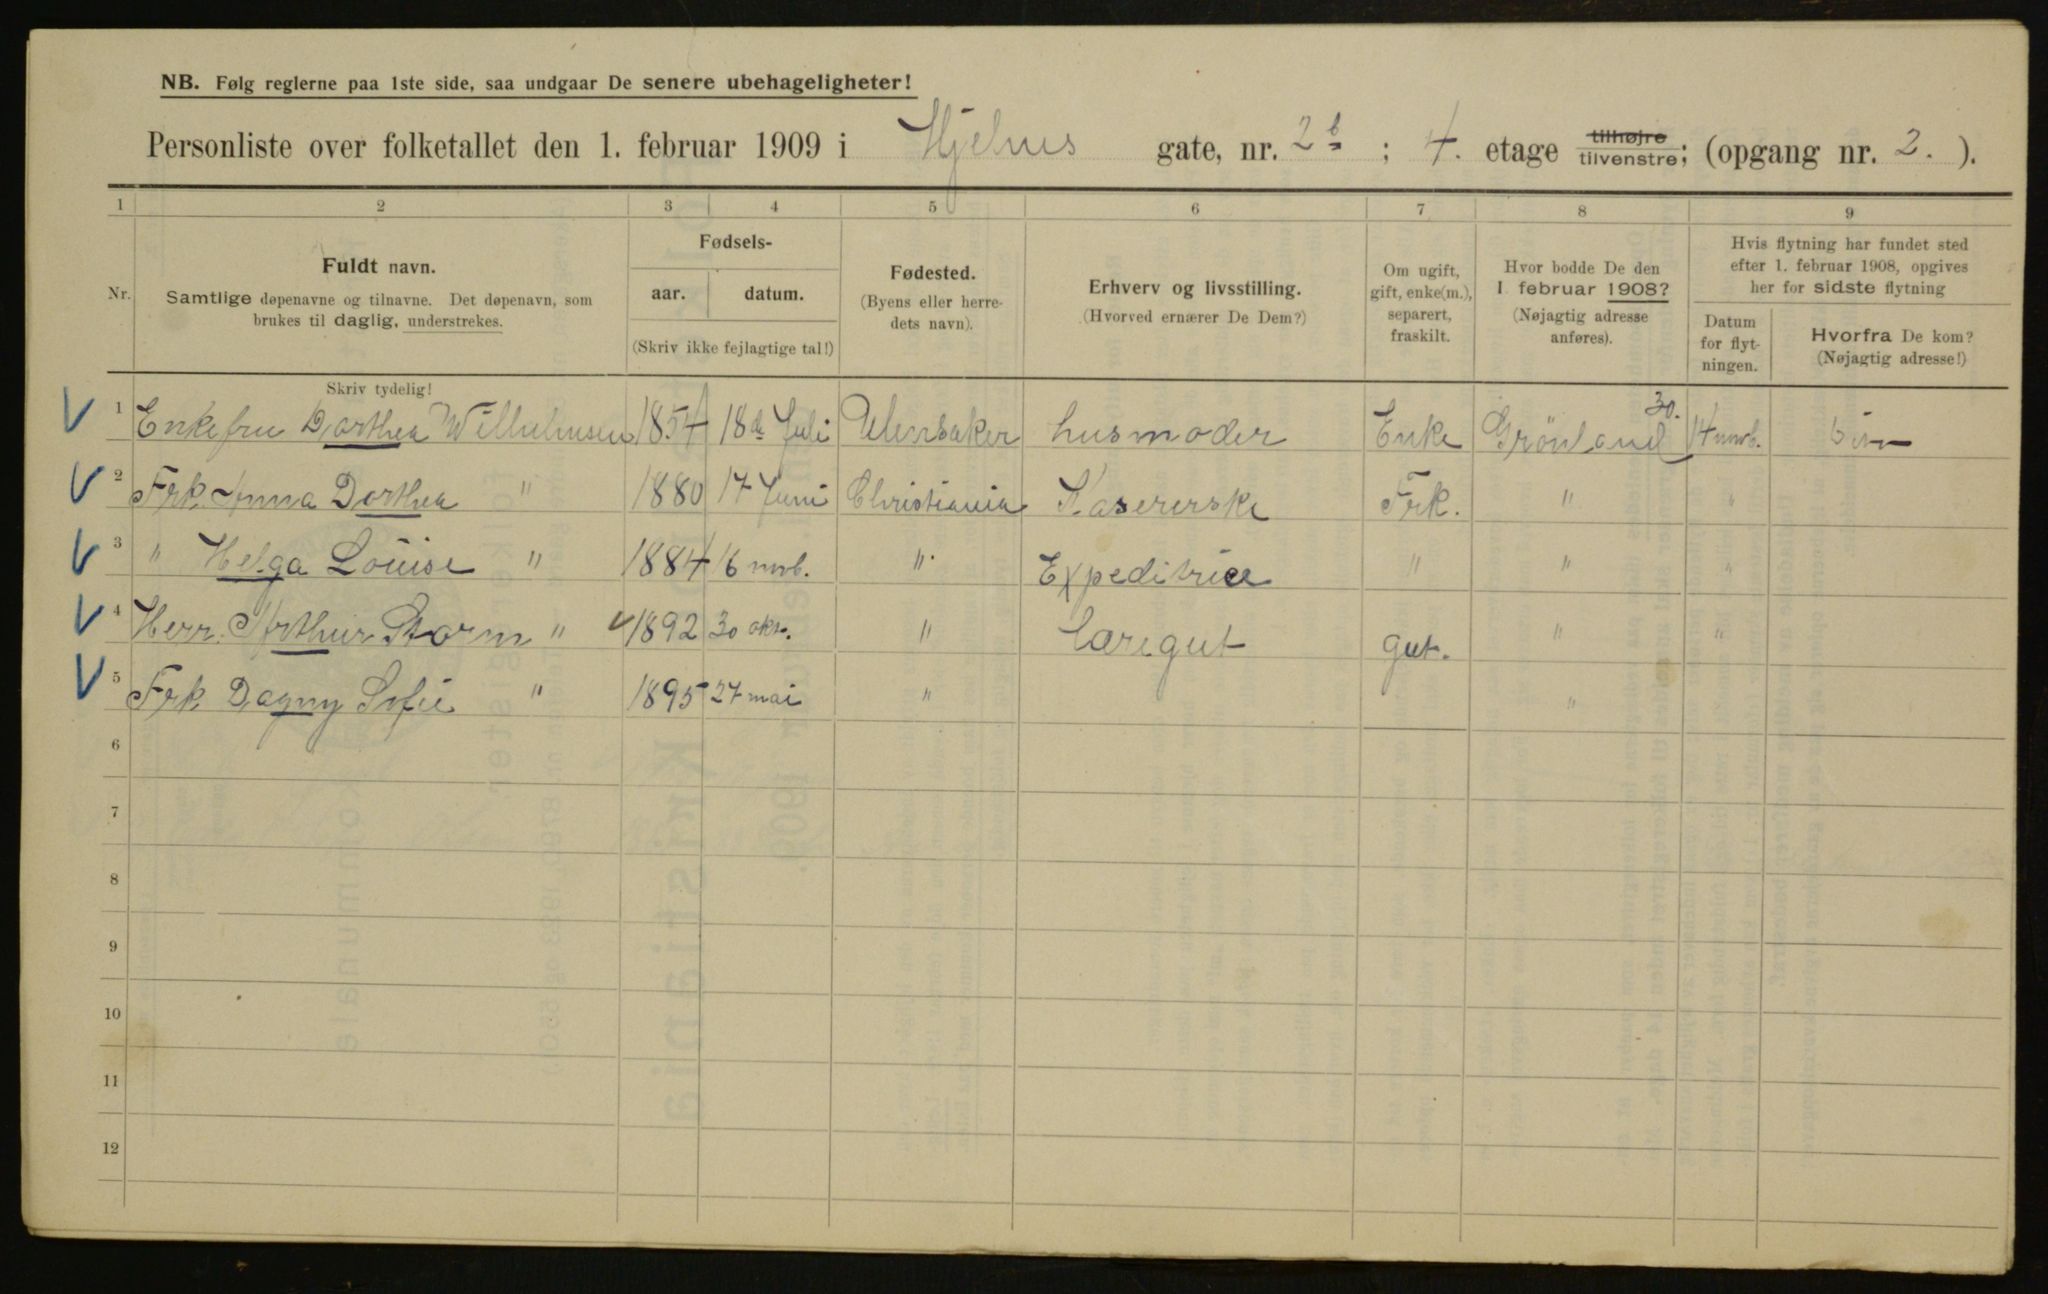 NB. Følg reglerne paa 1ste side, saa undgaar De senere ubehageligheter!
Personliste over folketallet den 1. februar 1909 i Hjelms gate, nr. 2b ; 4. etage tilhøjre tilvenstre; (opgang nr. 2. ).
1 2 3 4 5 6 7 8 9
Nr.
Fuldt navn.
Samtlige døpenavne og tilnavne. Det døpenavn, som
brukes til daglig, understrekes.
Skriv tydelig!
Fødsels-
aar. datum.
(Skriv ikke fejlagtige tal!)
Fødested.
(Byens eller herre-
dets navn).
Erhverv og livsstilling.
(Hvorved ernærer De Dem?)
Om ugift,
gift, enke(m.),
separert,
fraskilt.
Hvor bodde De den
1. februar 1908?
(Nøjagtig adresse
anføres).
Hvis flytning har fundet sted
efter 1. februar 1908, opgives
her for sidste flytning
Datum
for flyt-
ningen.
Hvorfra De kom?
(Nøjagtig adresse!)
1 Enkefru Dorthea Wilhelmsen 1854 18de Juli Ulensaker husmoder Enke Grönland 30. 14 novb.
2 Frk. Anna Dorthea " 1880 17 Juni Christiania Kasererske Frk. " "
3 " Helga Louise " 1884 16 novb. " Expeditrice " " "
4 Herr. Arthur Storm " 1892 30 okt. " Læregut gut. " "
5 Frk Dagny Sofie " 1895 27 mai " "
6
7
8
9
10
11
12